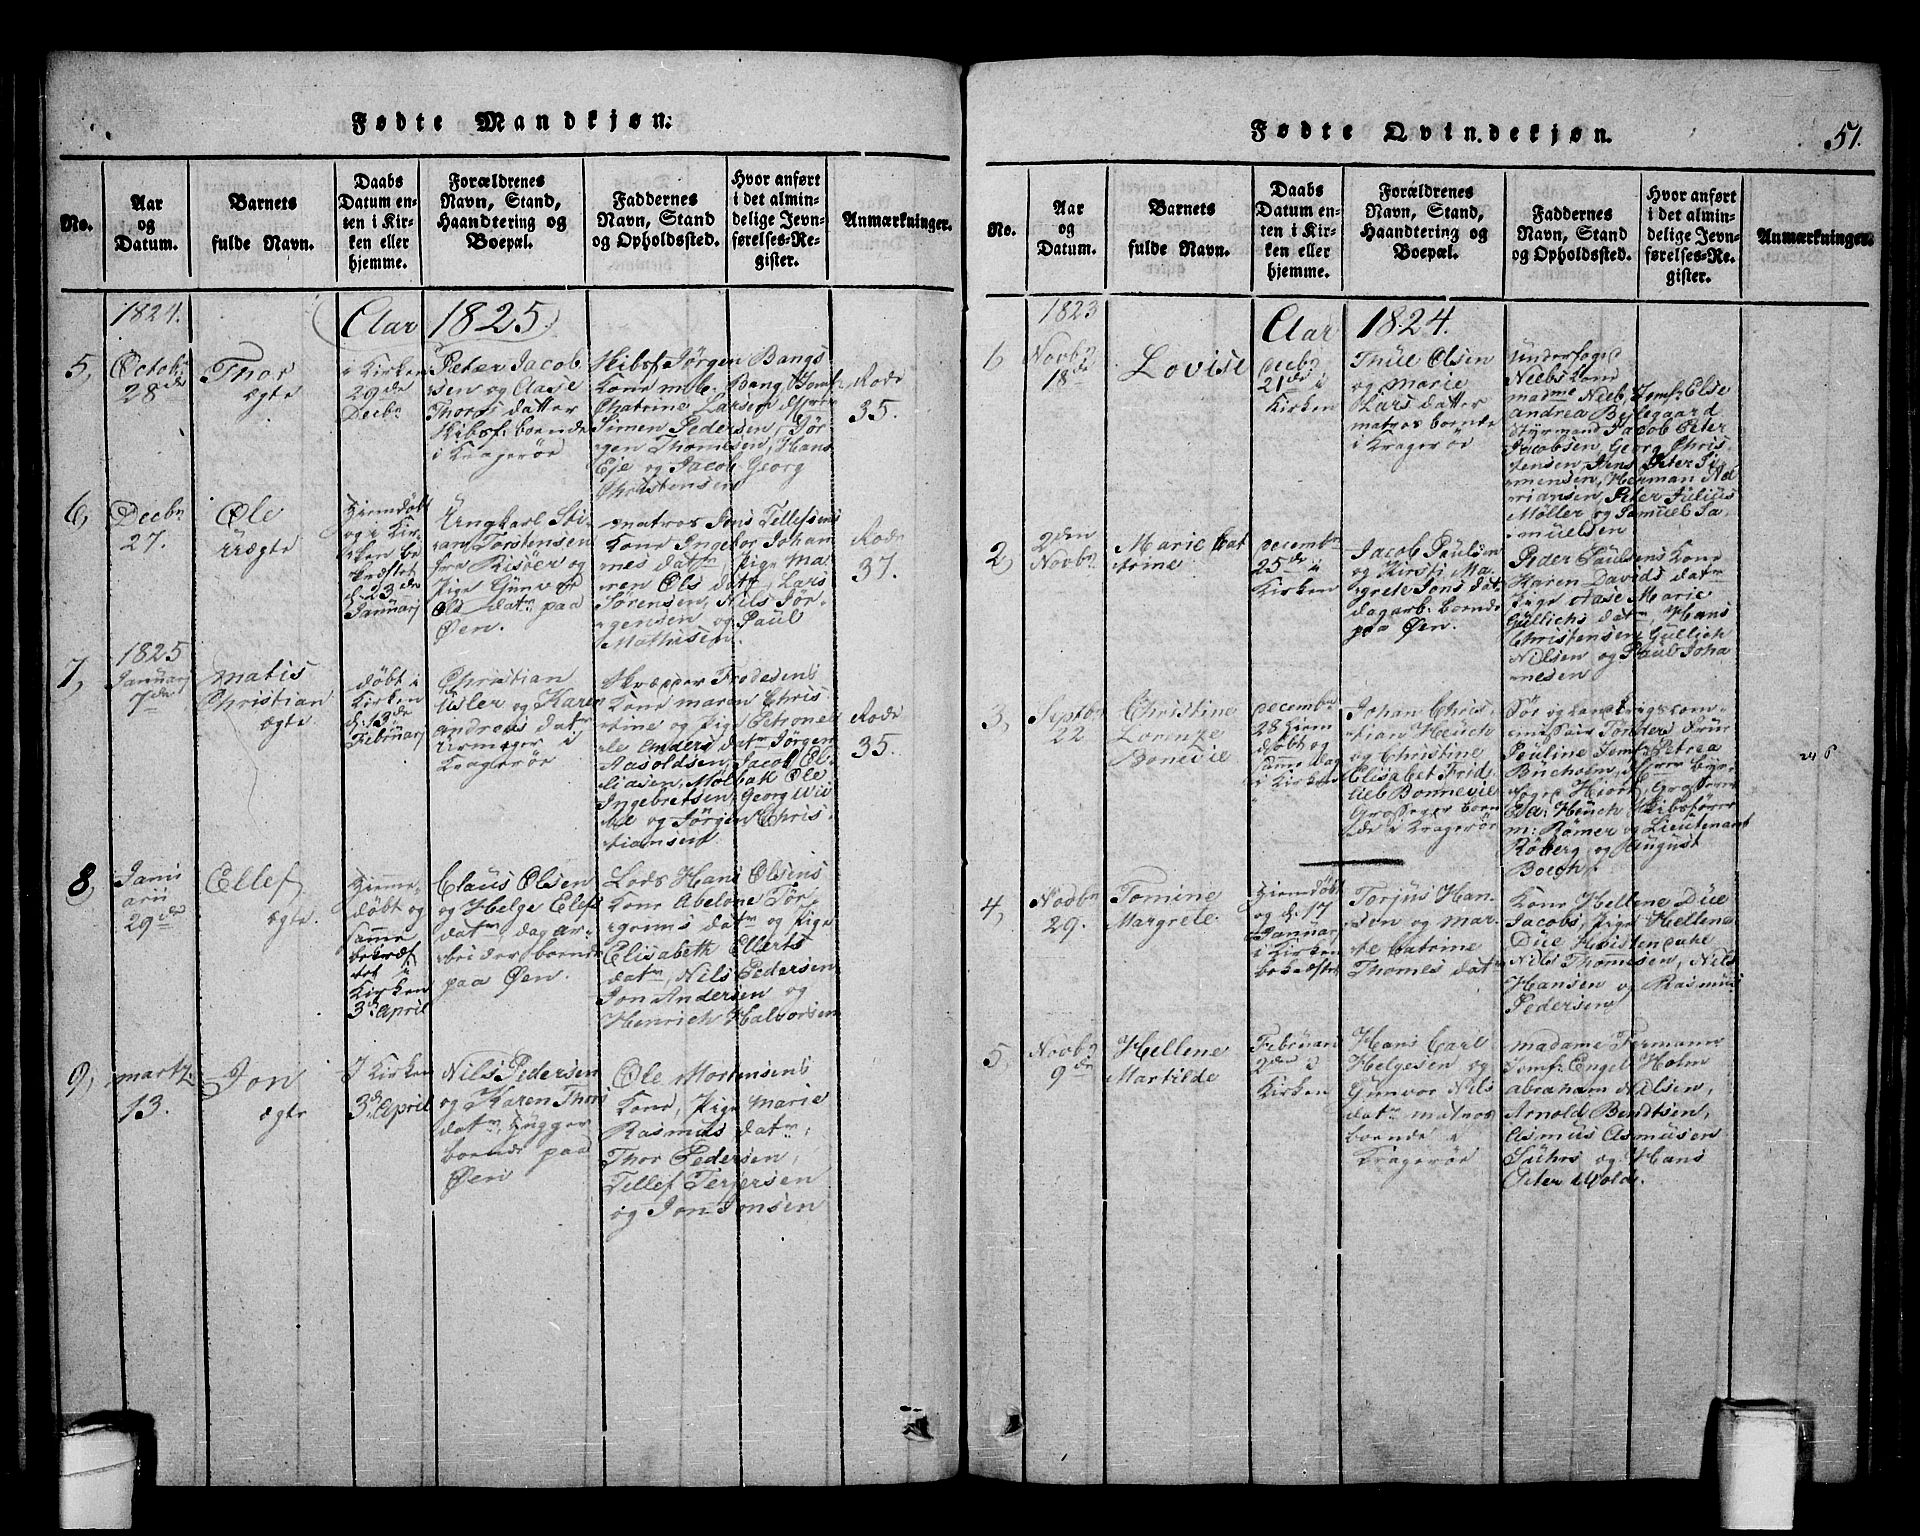 Fødte Mandkjøn.
No.
Aar
og
Datum.
Barnets
fulde Navn.
Daabs
Datum en-
ten i Kir-
ken eller
hjemme.
Forældrenes
Navn, Stand,
Haandtering og
Boepæl.
Faddernes
Navn, Stand
og Opholdssted.
Hvor anført
i det almin-
delige Jevn-
førelses-Re-
gister.
Anmærkninger.
1824.
Aar 1825
5,
Octob:
28de
Thor
ægte
i Kirken
29de
Decbr
Peter Jacob
sen og Aase
Thors datter
skibsf: boende
i Kragerøe
Skibsf Jørgen Bangs
Kone m: C. Bang Jomf:
Chatrine Larsen
Simen Pedersen, Jør
gen Thomesen, Hans
Eje og Jacob Georg
Christensen
Rode
35.
6,
Decbr
27.
Ole
uægte
Hjemdøbt
og i Kir-
ken be
kræftet
d: 23de
Januarj
Ungkarl Sti-
an Torstensen
fra Risöer og
Pige Gunvor
Ols datr paa
Øen.
matros Jens Tellefsens
Kone Ingebor Johan
nes datr, Pige Ma
ren Ols datr, Lars
Sørensen, Nils Jør
gensen og Paul
Mathisen.
Rode
37.
7,
1825
Januarj
7de
Matis
Christian
ægte
døbt i
Kirken
d: 13de
Februarj
Christian
Usler og Karen
Andreas datr
Urmager i
Kragerøe
Skræder Frodesens
Kone maren Chris
tine og Pige Petronel
le Anders datr Jørgen
Aasoldsen, Jacob El
liasen, Molbak Ole
Ingebretsen, Georg Wii
be og Jørgen Chris
tiansen
Rode
35.
8,
Janu
arii
29de
Ellef
ægte.
Hjemme-
døbt og
samme
bekræf
tet i
Kirken
3d April
Claus Olsen
og Helge Elefs
datr dagar-
beider boende
paa Øen.
Lods Hans Olsens
Kone Abelone Tør
grims datr og Pige
Elisabeth Ellerts
datr, Nils Pedersen
Jon Andersen og
Henrich Halvorsen
9,
martz.
13.
Jon
ægte
I Kirken
3d. April
Nils Pedersen
og Karen Thors
datr, Hügger
boende paa
Øen
Ole Mortensens
Kone, Pige marie
Rasmus datr,
Thor Pedersen,
Tellef Terjersen
og Jon Jonsen
Fødte Qvindekjøn.
51.
No.
Aar
og
Datum.
Barnets
fulde Navn.
Daabs
Datum en-
ten i Kir-
ken eller
hjemme.
Forældrenes
Navn, Stand,
Haandtering og
Boepæl.
Faddernes
Navn, Stand
og Opholdssted.
Hvor anført
i det almin-
delige Jevn-
førelses-Re-
gister.
Anmærkninger.
1823
Aar 1824.
1
Novbr
18de
Lovise
Decbr
21de i
Kirken
Thue Olsen
og marie
Lars datter
matros boende
i Kragerøe
Underfoged
Niebs Kone
madme Nieb, Jomf: Else
andrea Bislegaard
Styrmand Jacob Peter
Jacobsen, Georg Chris
tensen, Jens Peter Si
mensen, Herman Ad
riansen, Peter Julius
Møller og Samuel Sa-
muelsen
2,
2den
Novbr
Marie Cat
trine
December
25de i
Kirken
Jacob Paulsen
og Kirsti Ma-
grete Jons dat
dagarb: boende
paa Øen.
Peder Paulsens Kone
Karen Davids datr
Pige Aase Marie
Gullichs datr Hans
Christensen, Gullich
Nilsen og Paul Joha
nesen
3,
Septbr
22.
Christine
Lorenze
Bonevie
December
28 Hjem
døbt og
samme dag
i Kirken
Johan Chris
tian Heuch
og Christine
Elisabet Frid
lieb Bonnevie
Grosserer boen
de i Kragerøe
Sør og Landkrigskom-
missair Tønder Frue
Pauline Jomf: Petrea
Bucholm, Herr Bye
foged Hjort, Grosserer
Pa: Heuch Skibsfører
m: Rømer og Lieutenant
Røberg og August
Boegh
4,
Nodbr
29.
Tomine
Margrete.
Hjemdøbt
og d: 17
Januarj
i Kirken
bekræftet
Torjus Han-
sen og Mar-
te Catrine
Thomes datr
Kone Hellene Due
Jacobs, Pige Hellene
Due Høistendahl
Nils Thommesen, Nils
Hansen og Rasmus
Pedersen
5,
Novbr
9de
Hellene
Martilde
Februar
2den i
Kirken
Hans Carl
Helgesen og
Gunvor Nils
datr matros
boende i
Kragerøe
Madame Fermann
Jomf: Engel Holm
Abraham Nilsen,
Arnold Bendtsen,
Asmus Asmusen
Suhrs og Hans
Peter Wold.